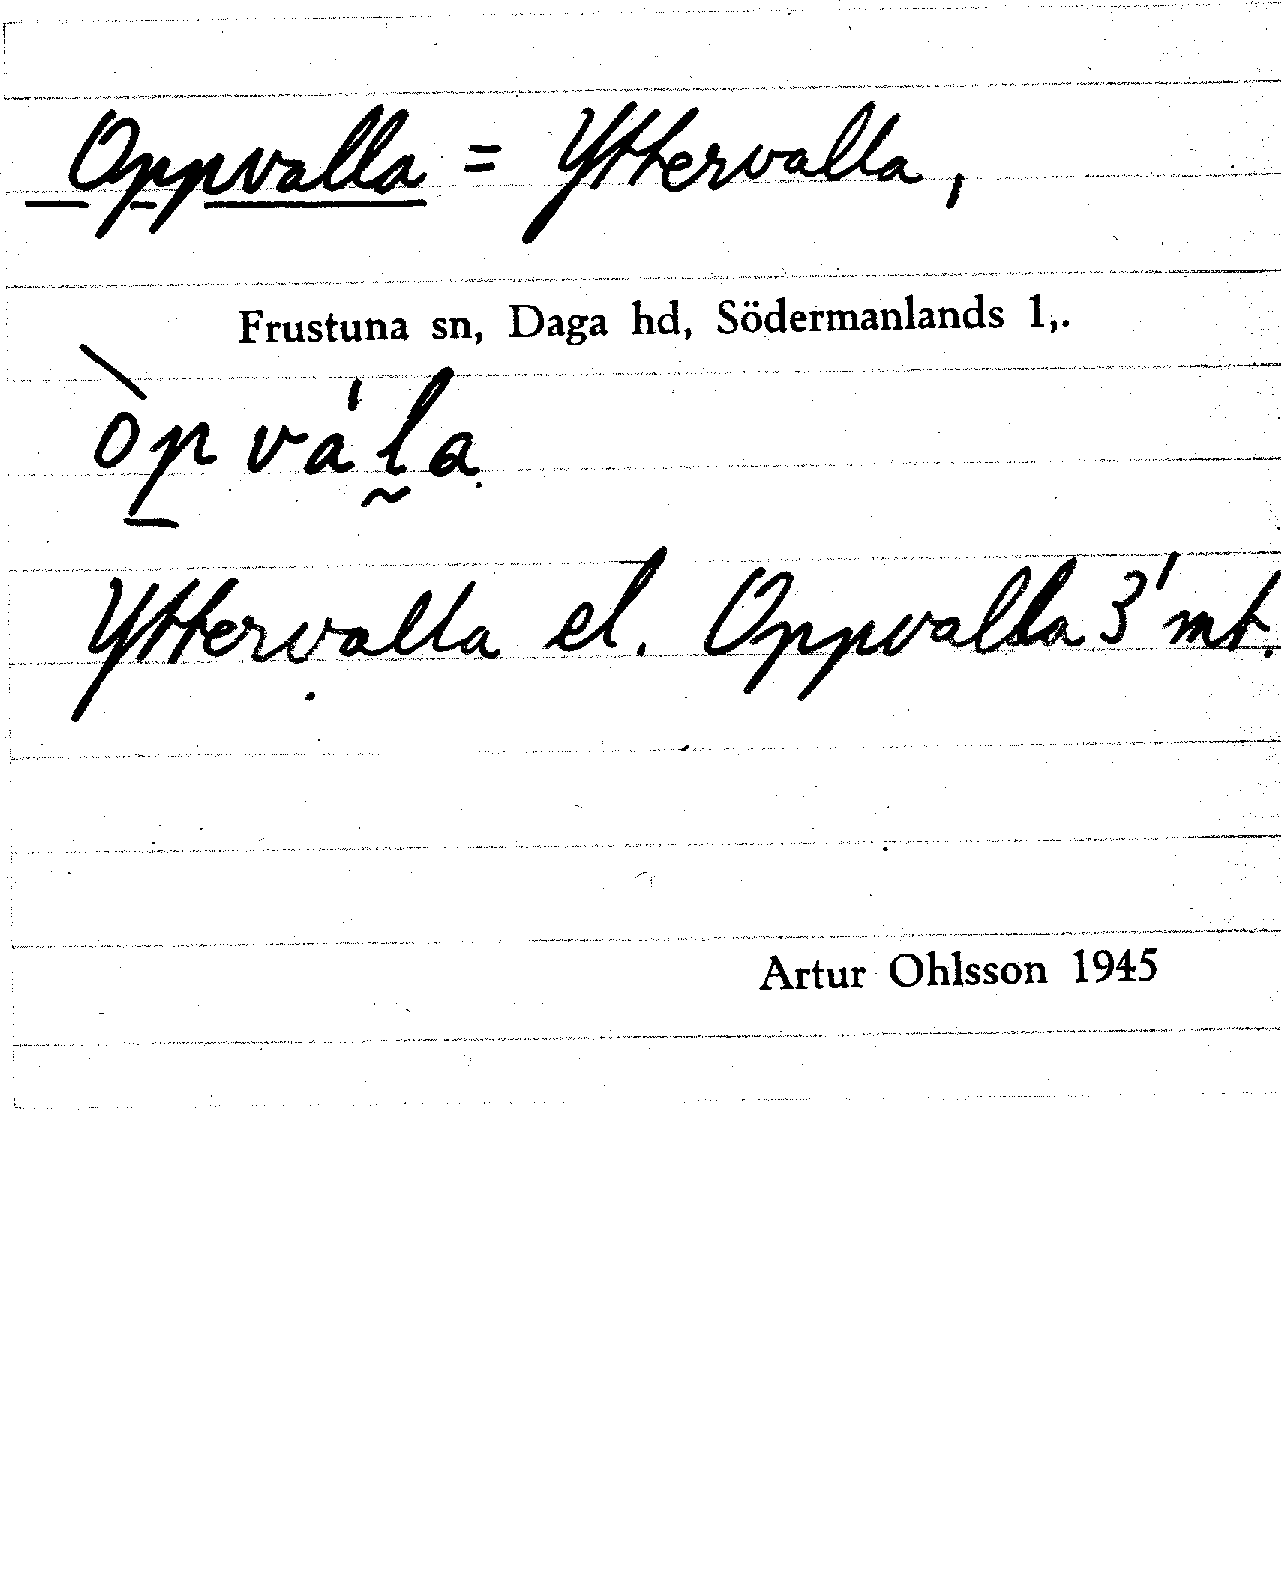 Oppvalla = Yttervalla,
Frustuna sn, Daga hd, Södermanlands l,.
òp̲ vá l̰a
Yttervalla el. Oppvalla 3' mt.
Artur Ohlsson 1945